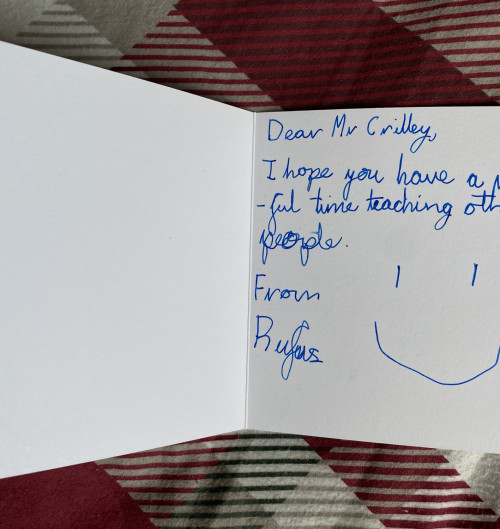 Dear Mr Crilley,
I hope you have a
-ful time teaching oth
people.
From
Rufus